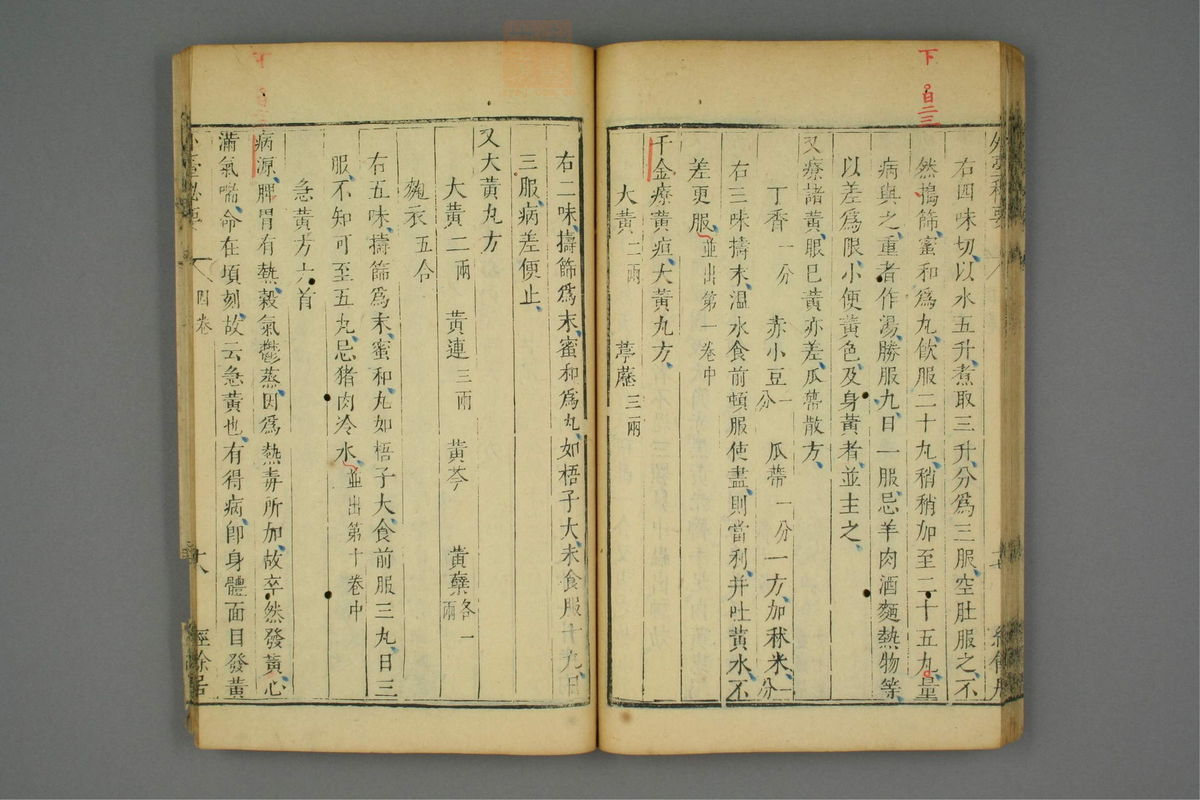 下
百二三
外臺秘要
右四味切以水五升煮取三升分為三服空肚服之不
然搗篩蜜和為丸飲服二十丸稍稍加至二十五丸量
病與之重者作湯勝服丸日一服忌羊肉酒麵熱物等
以差為限小便黃色及身黃者並主之
又療諸黃眼已黃亦差瓜蒂散方
丁香一分 赤小豆一分 瓜蒂一分一方加秫米一分
右三味擣末溫水食前頓服使盡則當利并吐黃水不
差更服並出第一卷中
千金療黃疸大黃丸方
大黃二兩 葶藶三兩
右二味擣篩為末蜜和為丸如梧子大未食服十丸日
三服病差便止
又大黃丸方
大黃二兩 黃連三兩 黃芩 黃蘗各一兩
麴衣五合
右五味擣篩為末蜜和丸如梧子大食前服三丸日三
服不知可至五丸忌猪肉冷水並出第十卷中
急黃方六首
病源脾胃有熱穀氣鬱蒸因為熱毒所加故卒然發黃心
滿氣喘命在頃刻故云急黃也有得病即身體面目發黃
外臺秘要 四卷 十八 經餘居